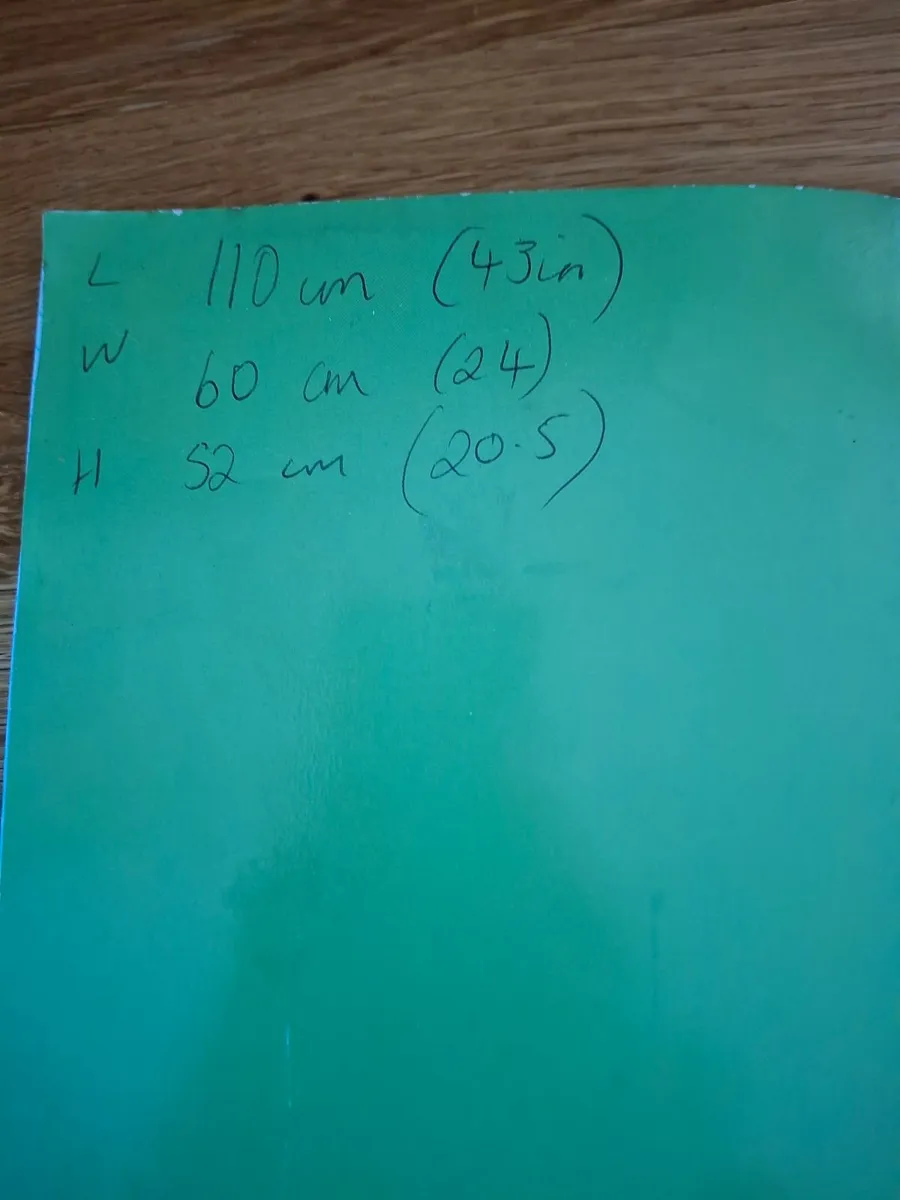 L 110 cm (43in)
W 60 cm (24)
H 52 cm (20.5)